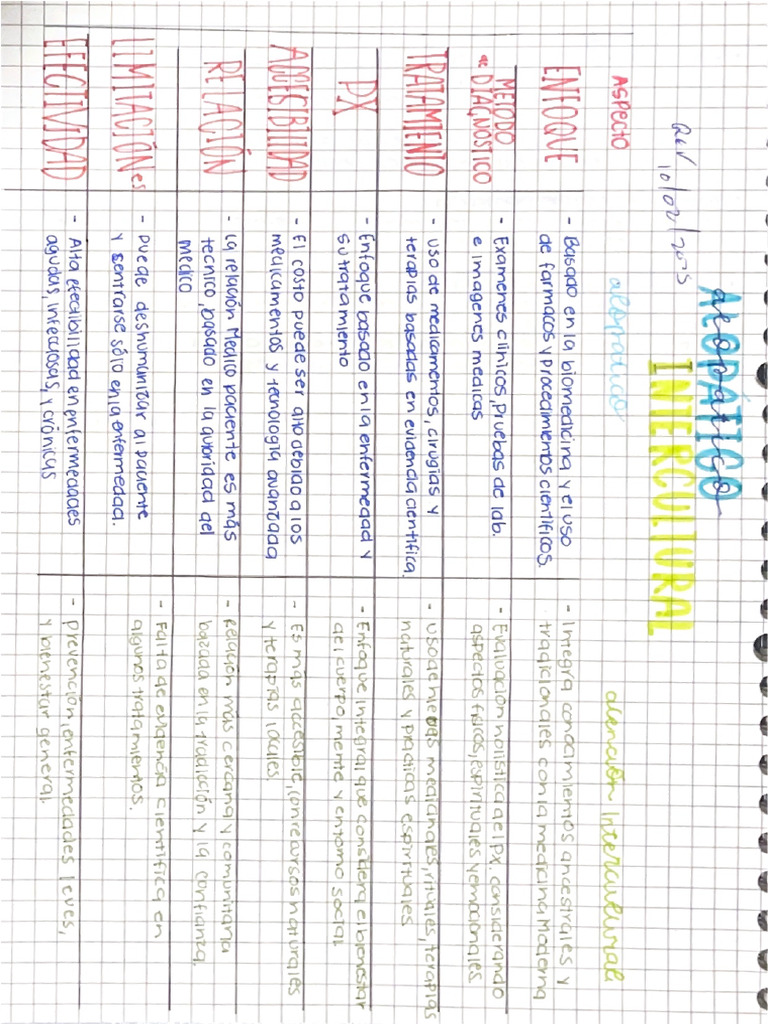 ALOPÁTICO
alopático
INTERCULTURAL
Rev 10/02/2025
ASPECTO
alopático
atención Intercultural
ENFOQUE
- Basado en la biomedicina y el uso
de farmacos y procedimientos científicos.
- Integra conocimientos ancestrales y
tradicionales con la medicina Moderna
METODO
de DIAGNÓSTICO
- Exámenes clínicos, Pruebas de lab.
e imagenes medicas
- Evaluación holistica del px, considerando
aspectos físicos, espirituales y emocionales.
TRATAMIENTO
- uso de medicamentos, cirugias y
terapias basadas en evidencia cientifica.
- uso de hierbas medicinales, rituales, terapias
naturales y practicas espirituales
PX
- Enfoque basado en la enfermedad y
su tratamiento
- Enfoque integral que considera el bienestar
del cuerpo, mente y entorno social.
ACCESIBILIDAD
- El costo puede ser alto debido a los
medicamentos y tecnología avanzada
- Es más accesible, con recursos naturales
y terapias locales.
RELACIÓN
- La relación Medico paciente es más
tecnico, basado en la autoridad del
medico
- Relación más cercana y comunitaria
bazada en la tradición y la confianza.
LIMITACIÓNes
- Puede deshumanizar al paciente
y sentrarse sólo en la enfermedad.
- Falta de evidencia cientifica en
algunos tratamientos.
EFECTIVIDAD
- Alta efectibilidad en enfermedades
agudas, infecciosas, y crónicas
- prevención, enfermedades leves,
y bienestar general.